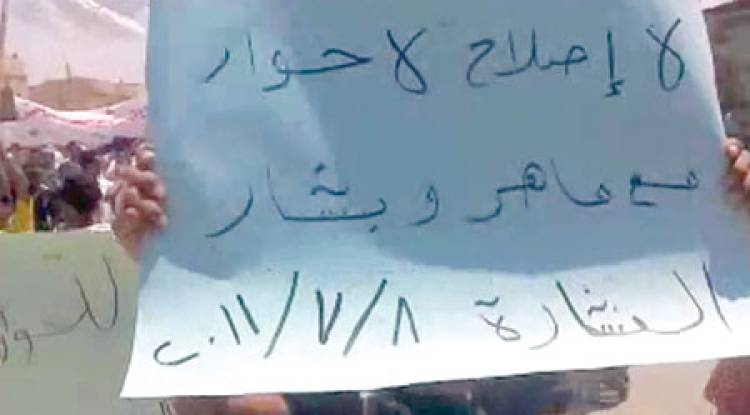 لا إصلاح لا حوار
مع ماهر و بشار
العشارة ٨/٧/٢٠١١